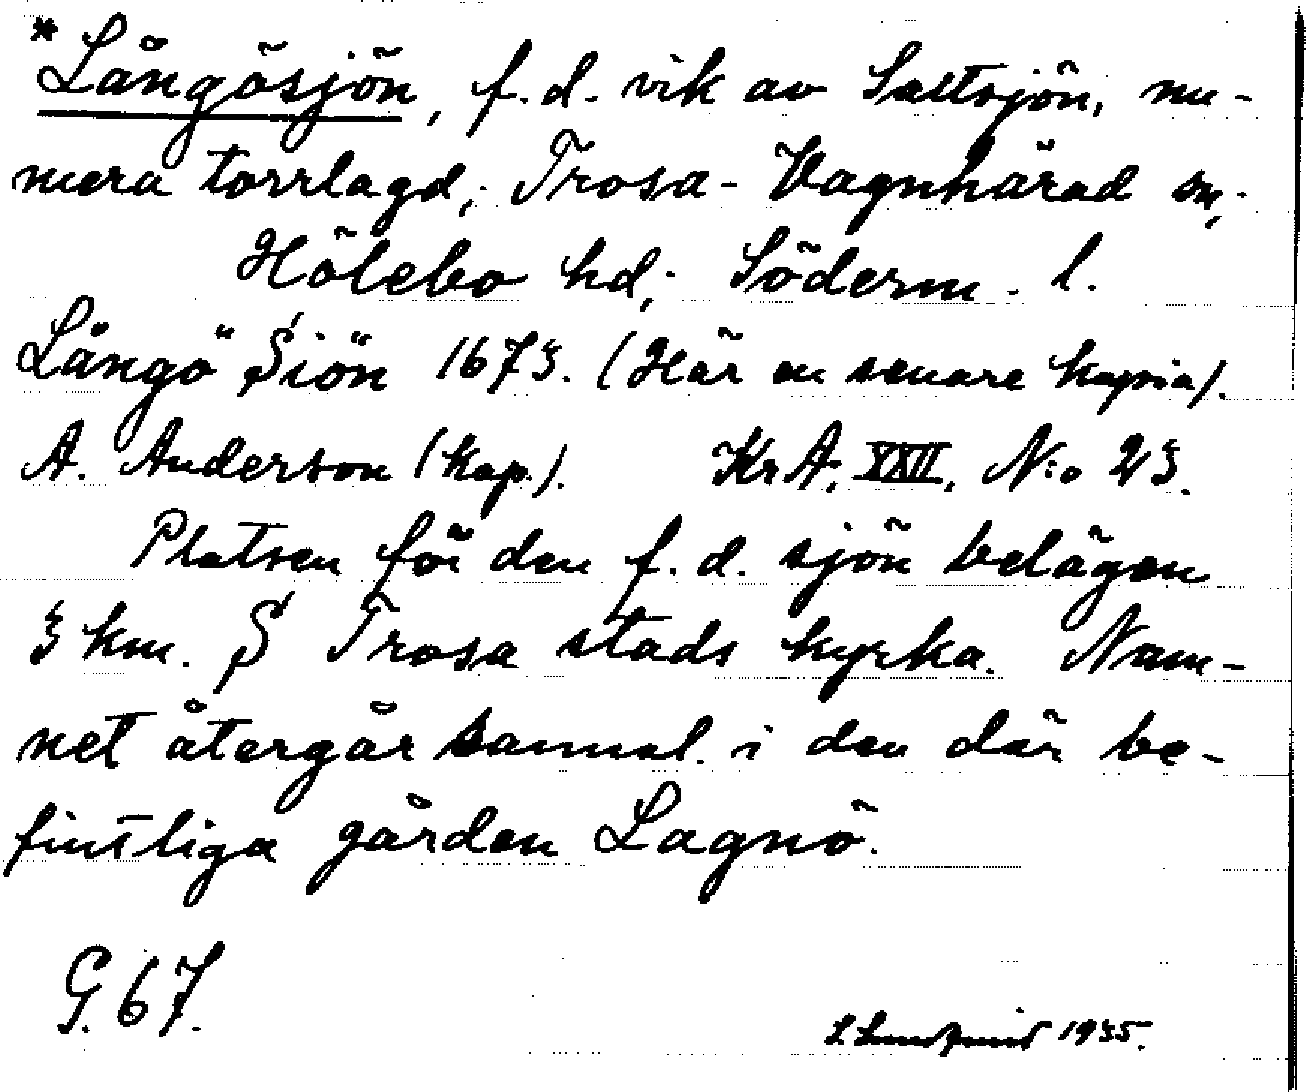 *Långösjön, f.d. vik av Saltsjön, nu-
mera torrlagd; Trosa-Vagnhärad sn,
Hölebo hd; Söderm. l.
Långö Siön 1673. (Här en senare kopia).
A. Anderson (kop.). KrA, XXII, N:o 23.
Platsen för den f.d. sjön belägen
3 km. S Trosa stads kyrka. Nam-
net återgår sannol. i den där be-
fintliga gården Lagnö.
G. 67.
S. Lundqvist 1935.